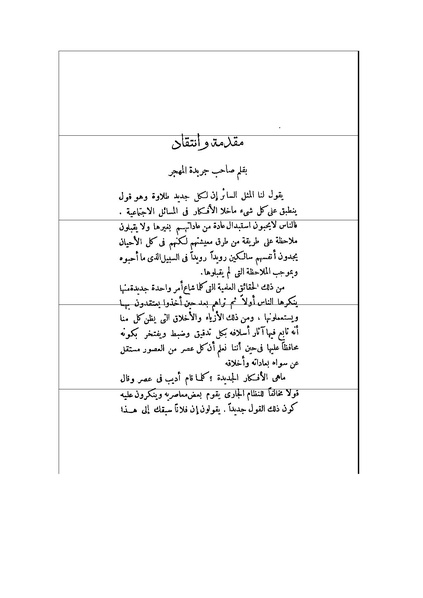 مقدمة وانتقاد
بقلم صاحب جريدة المهجر
يقول لنا المثل السائر إن لكل جديد طلاوة وهو قول
ينطبق على كل شيء ماخلا الأفكار فى المسائل الاجتماعية .
فالناس لايحبون استبدال عادة من عاداتهم بغيرها ولا يقبلون
ملاحظة على طريقة من طرق معيشتهم لكنهم فى كل الأحيان
يجدون أنفسهم سالكين رويداً رويداً فى السبيل الذى ما أحبوه
وبموجب الملاحظة التى لم يقبلوها.
من ذلك الحقائق العلمية التى كلما شاع أمر واحدة جديدة منها
ينكرها الناس أولاً ثم تراهم بعد حين أخذوا يعتقدون بها
ويستعملونها ، ومن ذلك الأزياء والأخلاق التى يظن كل منا
أنه تابع فيها آثار أسلافه بكل تدقيق وضبط ويفتخر بكونه
محافظاً عليها فى حين أننا نعلم أن كل عصر من العصور مستقل
عن سواه بعاداته وأخلاقه
ماهى الأفكار الجديدة ؟ كلما قام أديب فى عصر وقال
قولا مخالفاً للنظام الجارى يقوم بعض معاصريه وينكرون عليه
كون ذلك القول جديداً . يقولون إن فلاناً سبقك إلى هذا